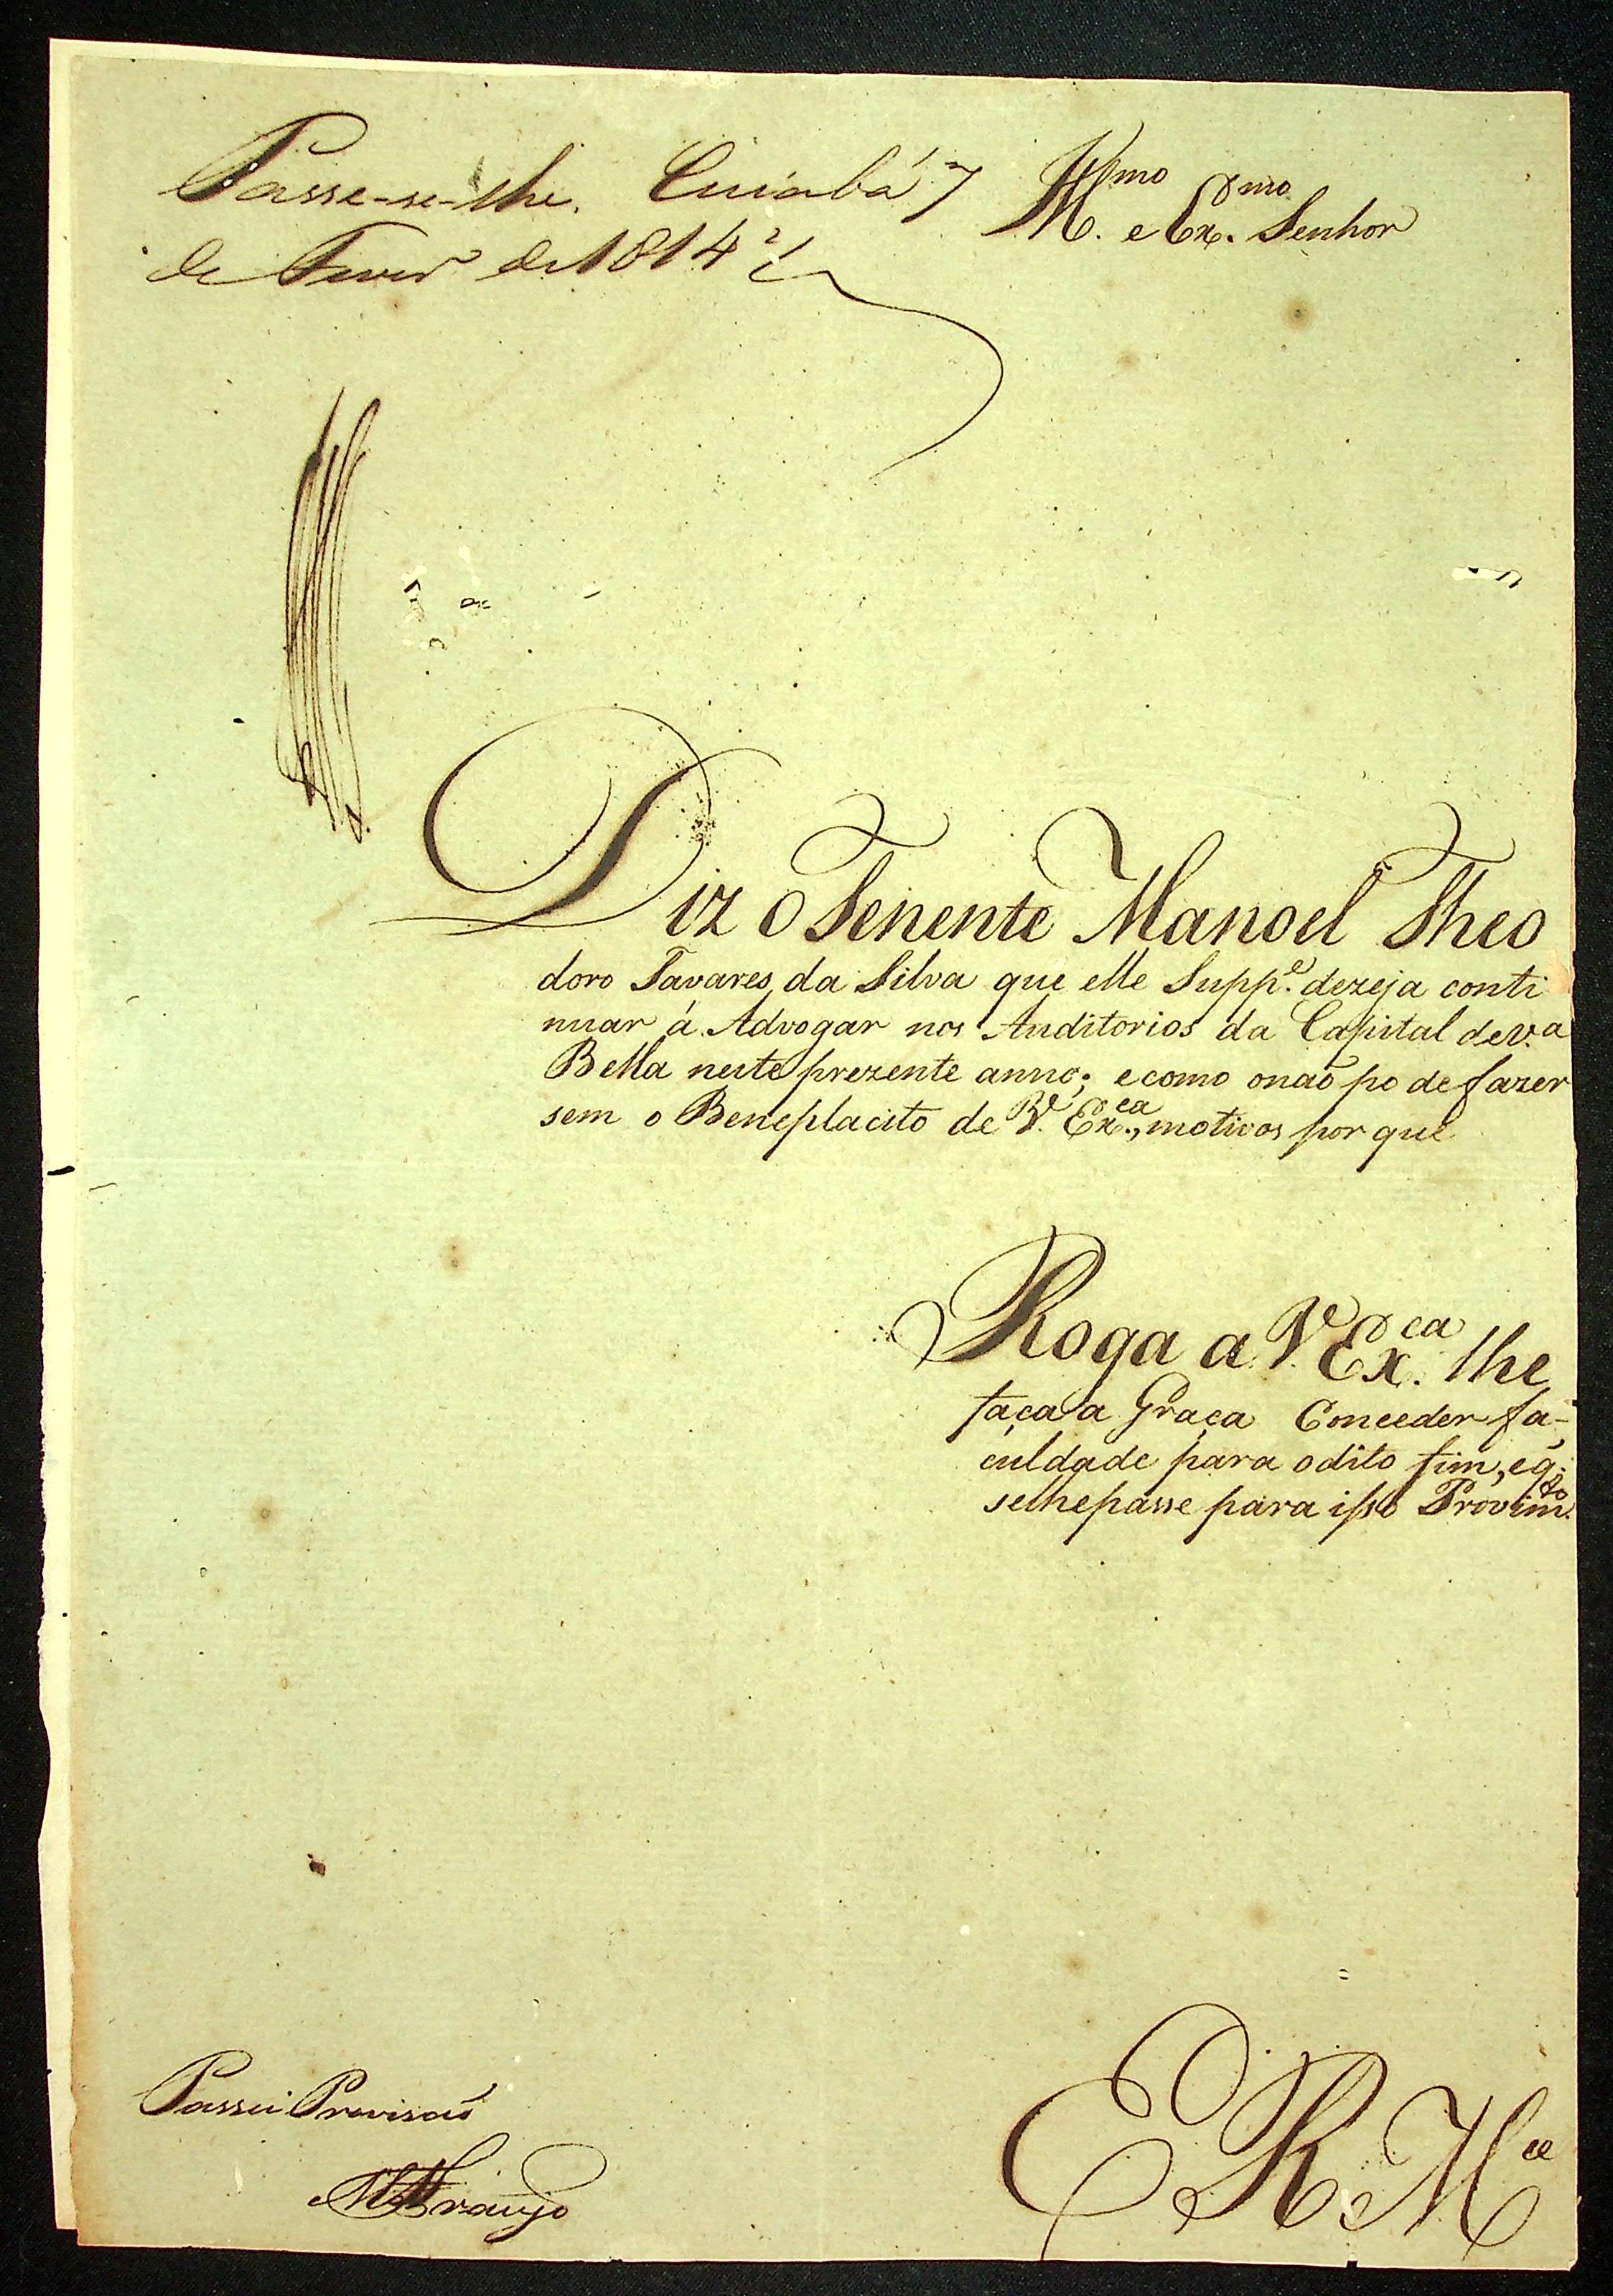 Passe-se-lhe. Cuiabá 7
de Fever.º de 1814
Ill.mo e Ex.mo Senhor
Diz o Tenente Manoel Theo
doro Tavares da Silva que elle Supp.e dezeja conti
nuar á Advogar nos Auditorios da Capital de V.a
Bella neste prezente anno; e como onaõ pode fazer
sem o Beneplacito de V. Ex.ca, motivos por que
Roga a V. Ex.ca lhe
faça a Graça Conceder fa-
culdade para odito fim, eq̃.
selhepasse para isso Provim.to
Passei Provisaõ
Araujo
E R M.ce